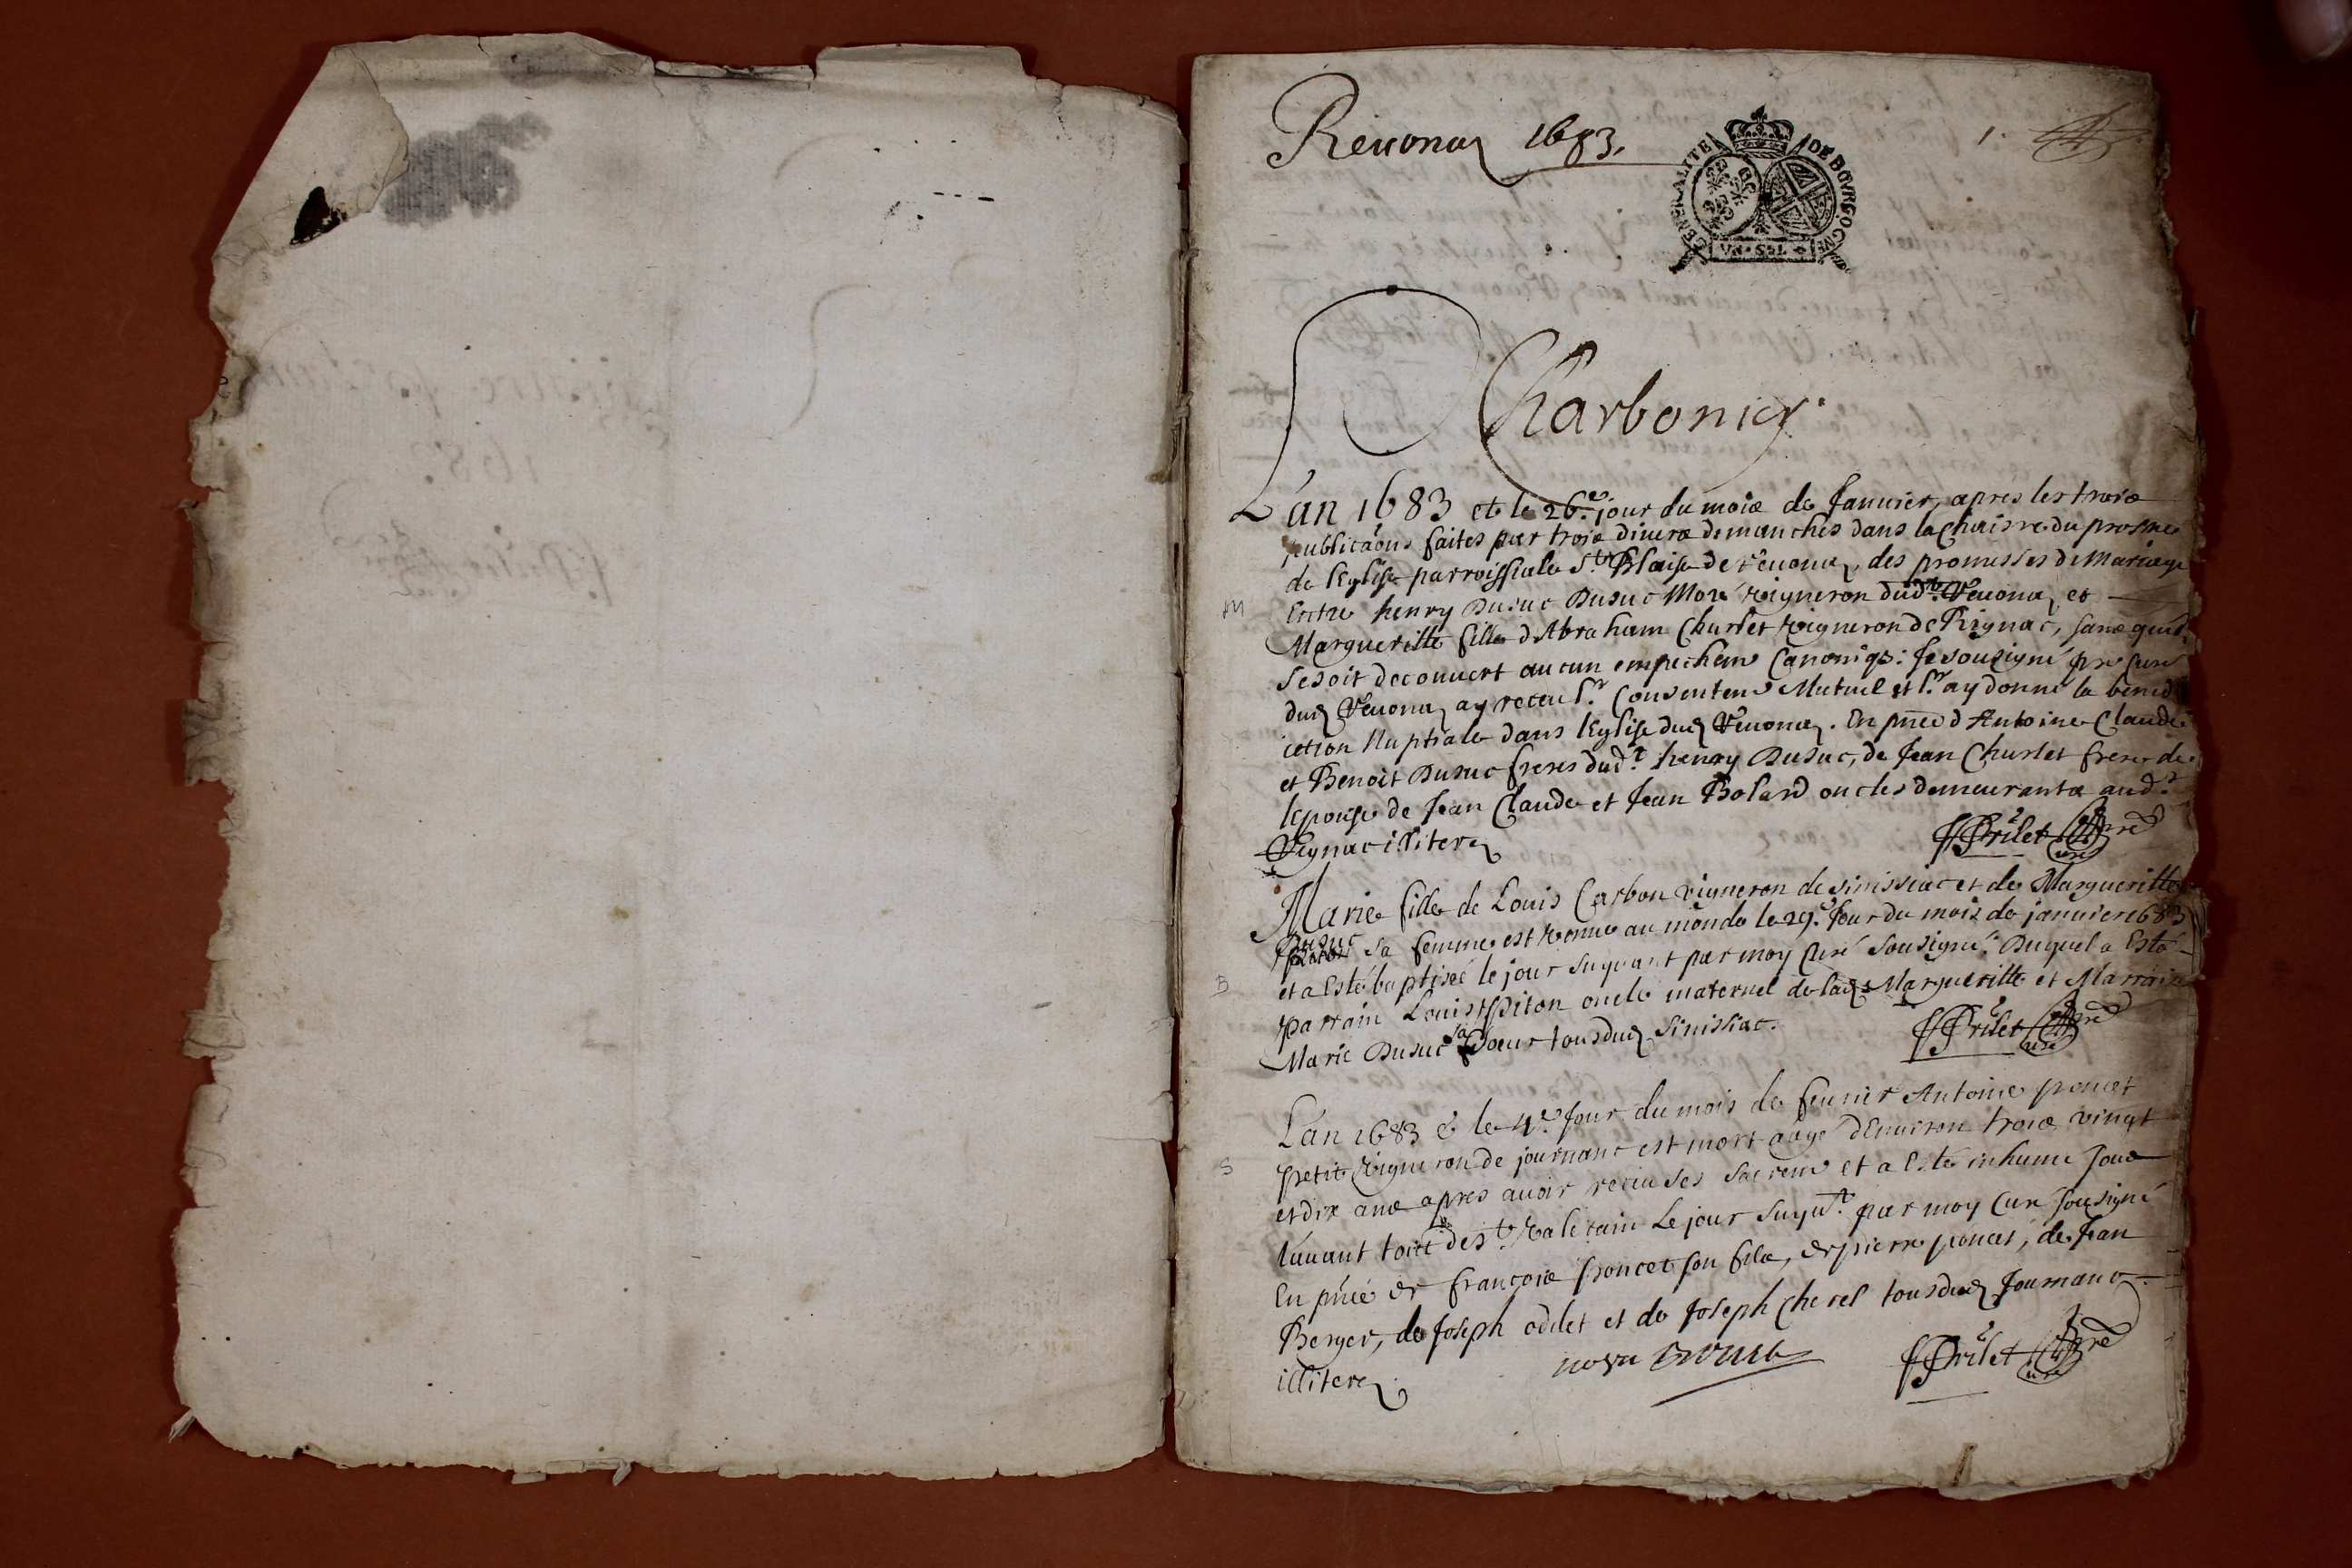 Reuonaz 1683.
1.
GENERALITE DE BOVRGOGNE
VN · SOL
Charbonier
L'an 1683 et le 26.e jour du mois de Januier, apres les trois
publicãons faites par trois diuers demanches dans la Chaisre du prosne
de l'Eglise parroissiale S.t Blaise de reuonaz, des promesses de Mariage
M
Entre henry Dusuc Dusuc Moré vigneron dud.t Reuonaz et
Marguerilte fille d'Abraham Churlet vigneron de Rignac, sans quil
se soit decouuert aucun empechem̃ Canoniq̃: Je sousigné pre Curé
dud Reuonaz ay receu l.r Consentem̃ Mutuel et l.r ay donné la bened
iction Nuptiale dans l'Eglise dud Reuonaz. En pñce d'Antoine Claude
et Benoit Dusuc freres dud.t henry Dusuc, de Jean Churlet frere de
l'epouse de Jean Claude et Jean Bolard oncles demeurants aud.t
Rignac illiterez
Prilet pre Curé
Marie fille de Louis Carbon vigneron de Sinissiac et de Marguerilte
Dusuc sa femme est venue au monde le 29.e Jour du mois de januier 1683
B
et a esté baptisée le jour suyuant par moy Curé sousigné. Duquel a Esté
parrain Louis Piton oncle maternel de lad Marguerilte et Marraine
Marie Dusuc sa soeur tous dud Sinissiac.
Prilet pre Curé
L'an 1683 & le 4.e Jour du mois de feurier Antoine poncet
petit vigneron de journanc est mort aagé d'Enuiron trois vingt
S
et dix ans apres auoir receu ses sacrem̃ et a Esté inhumé sous
l'auant toict de S.t Valetain Le jour suyu.t par moy Curé sousigné
En pñce de françois poncet son fils, de pierre poncet, de Jean
Berger, de Joseph odilet et de Joseph Cherel tous dud Journanc
illiterez.
Prilet pre Curé